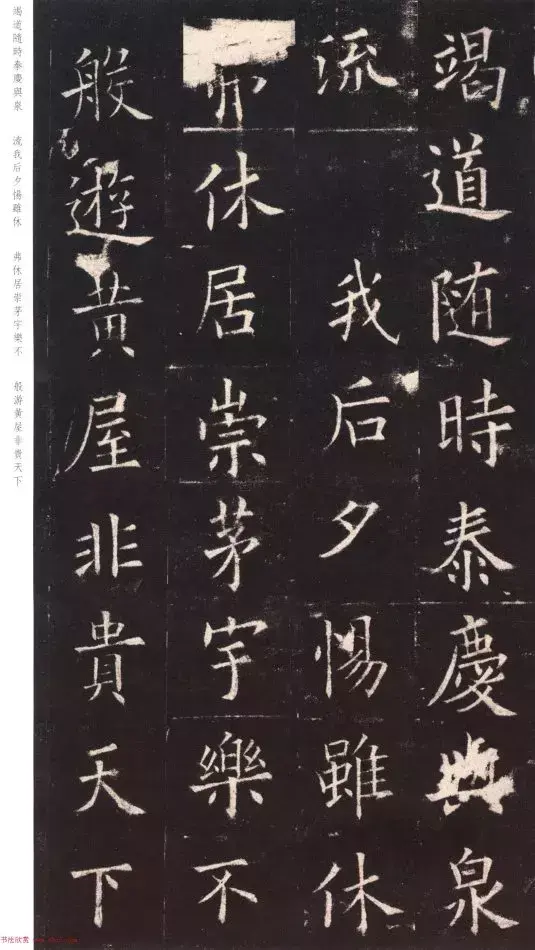 竭道随時泰慶與泉
流我后夕惕雖休
弗休居崇茅宇樂不
般遊黄屋非貴天下
竭道随時泰慶與泉 流我后夕惕雖休 弗休居崇茅宇樂不 般游黄屋非貴天下
书法欣赏